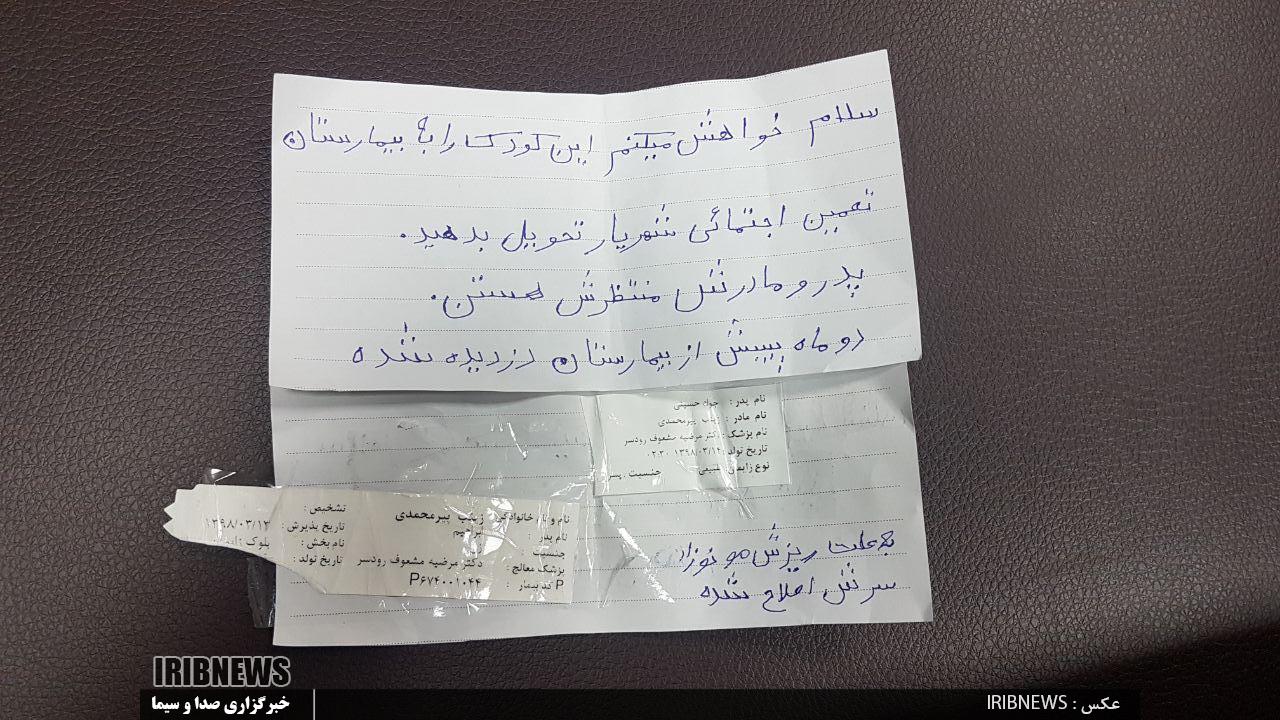 سلام خواهش میکنم این کودک را به بیمارستان
تعمین اجتمائی شهریار تحویل بدهید.
پدر و مادرش منتظرش هستن.
دو ماه پیش از بیمارستان دزدیده شده
نام پدر : جواد حسینی
نام مادر : زینب پیرمحمدی
نام پزشک : دکتر مرضیه مشعوف رودسر
تاریخ تولد : ۱۳۹۸/۰۳/۱۲ ۰۲:۳۰
نوع زایمان طبیعی جنسیت : پسر
نام و نام خانوادگی : زینب پیرمحمدی تشخیص :
نام پدر : ابراهیم تاریخ پذیرش : ۱۳۹۸/۰۳/۱۲
جنسیت : نام بخش : بلوک
پزشک معالج : دکتر مرضیه مشعوف رودسر تاریخ تولد :
کد بیمار : P۶۷۴۰۰۱۰۴۴ P
به علت ریزش مو نوزاد
سرش اصلاح شده
IRIBNEWS
خبرگزاری صدا و سیما
عکس : IRIBNEWS